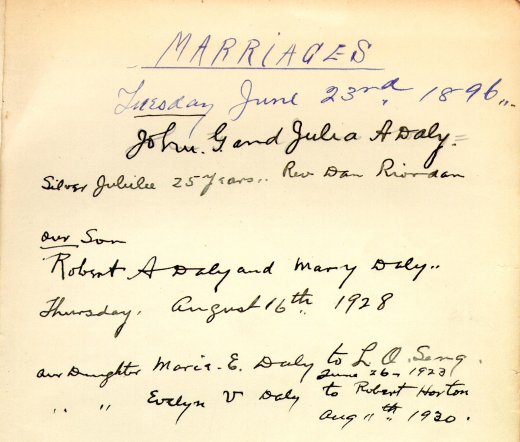 MARRIAGES
Tuesday June 23rd, 1896,,
John. G and Julia A Daly.
Silver Jubilee 25 Years,. Rev Dan Riordan
our Son
Robert A Daly and Mary Daly..
Thursday. August 16th 1928
our Daughter Marie. E. Daly to L. O. Seng.
June 26 - 1923
" " Evelyn V Daly to Robert Horton
Aug 11th 1930.